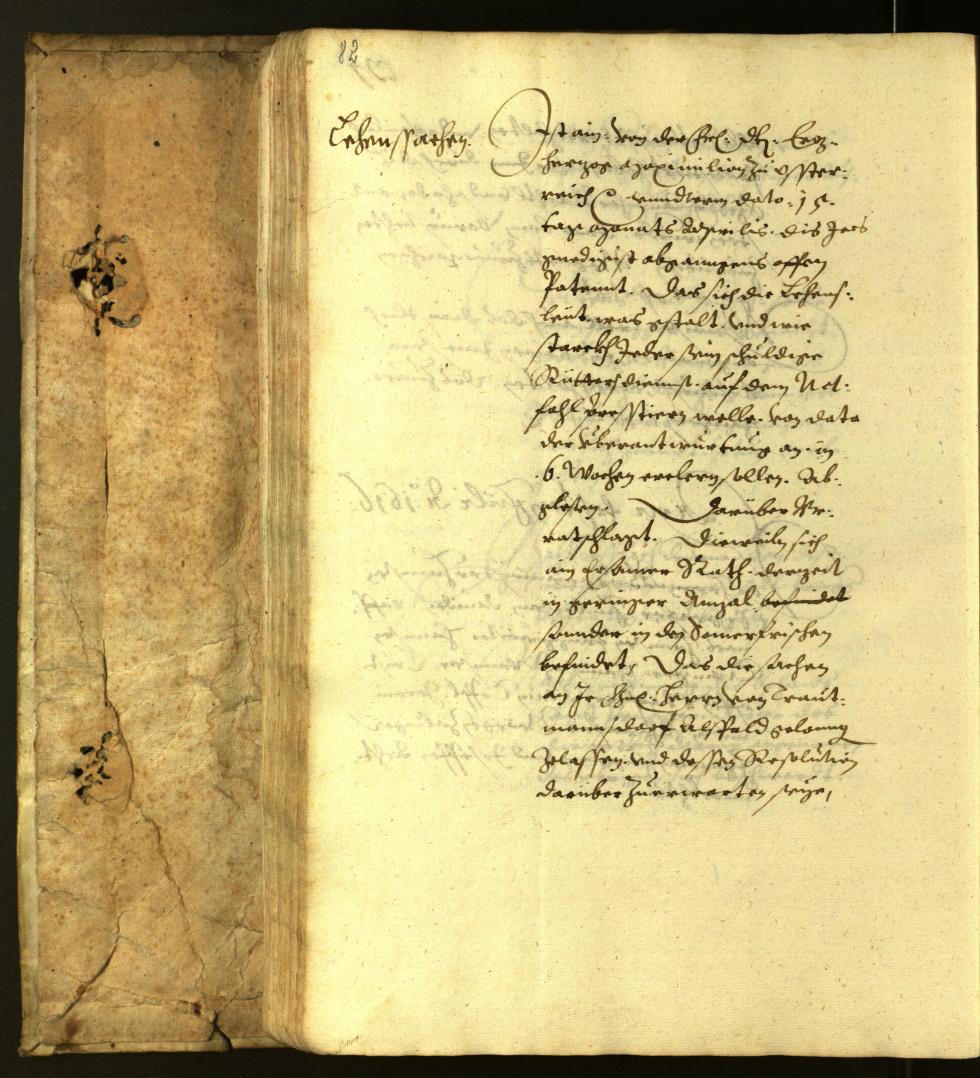 82
Lehenssachen.
Ist ain: von der Frl: Dt: Erz-
herzog Maximilian zu Össter:
reich &c. vnndterm dato. 15.
tag Monats Apprilis. dis Jars
genedigist abganngens offen
Patennt. Das sich die Lehens:
leüt, was gstalt. vnd wie
starckh Jeder sein schuldige
Rütterdiennst. auf dem Not:
fahl presstiern welle. von dato
der Überantwurtung an. in
6. Wochen erclern sollen. Ab-
glesen. Darüber Ver-
ratschlagt. Dieweiln sich
ain Ersamer Rath. derzeit
in geringer Anzal befindet
sonnder in den Somerfrischen
befindet, Das die sachen
an Ir Herrn von Traut-
mannsdorf gelanng
zelassen. vnd dessen Resolution
darüber zuerwarten seye,